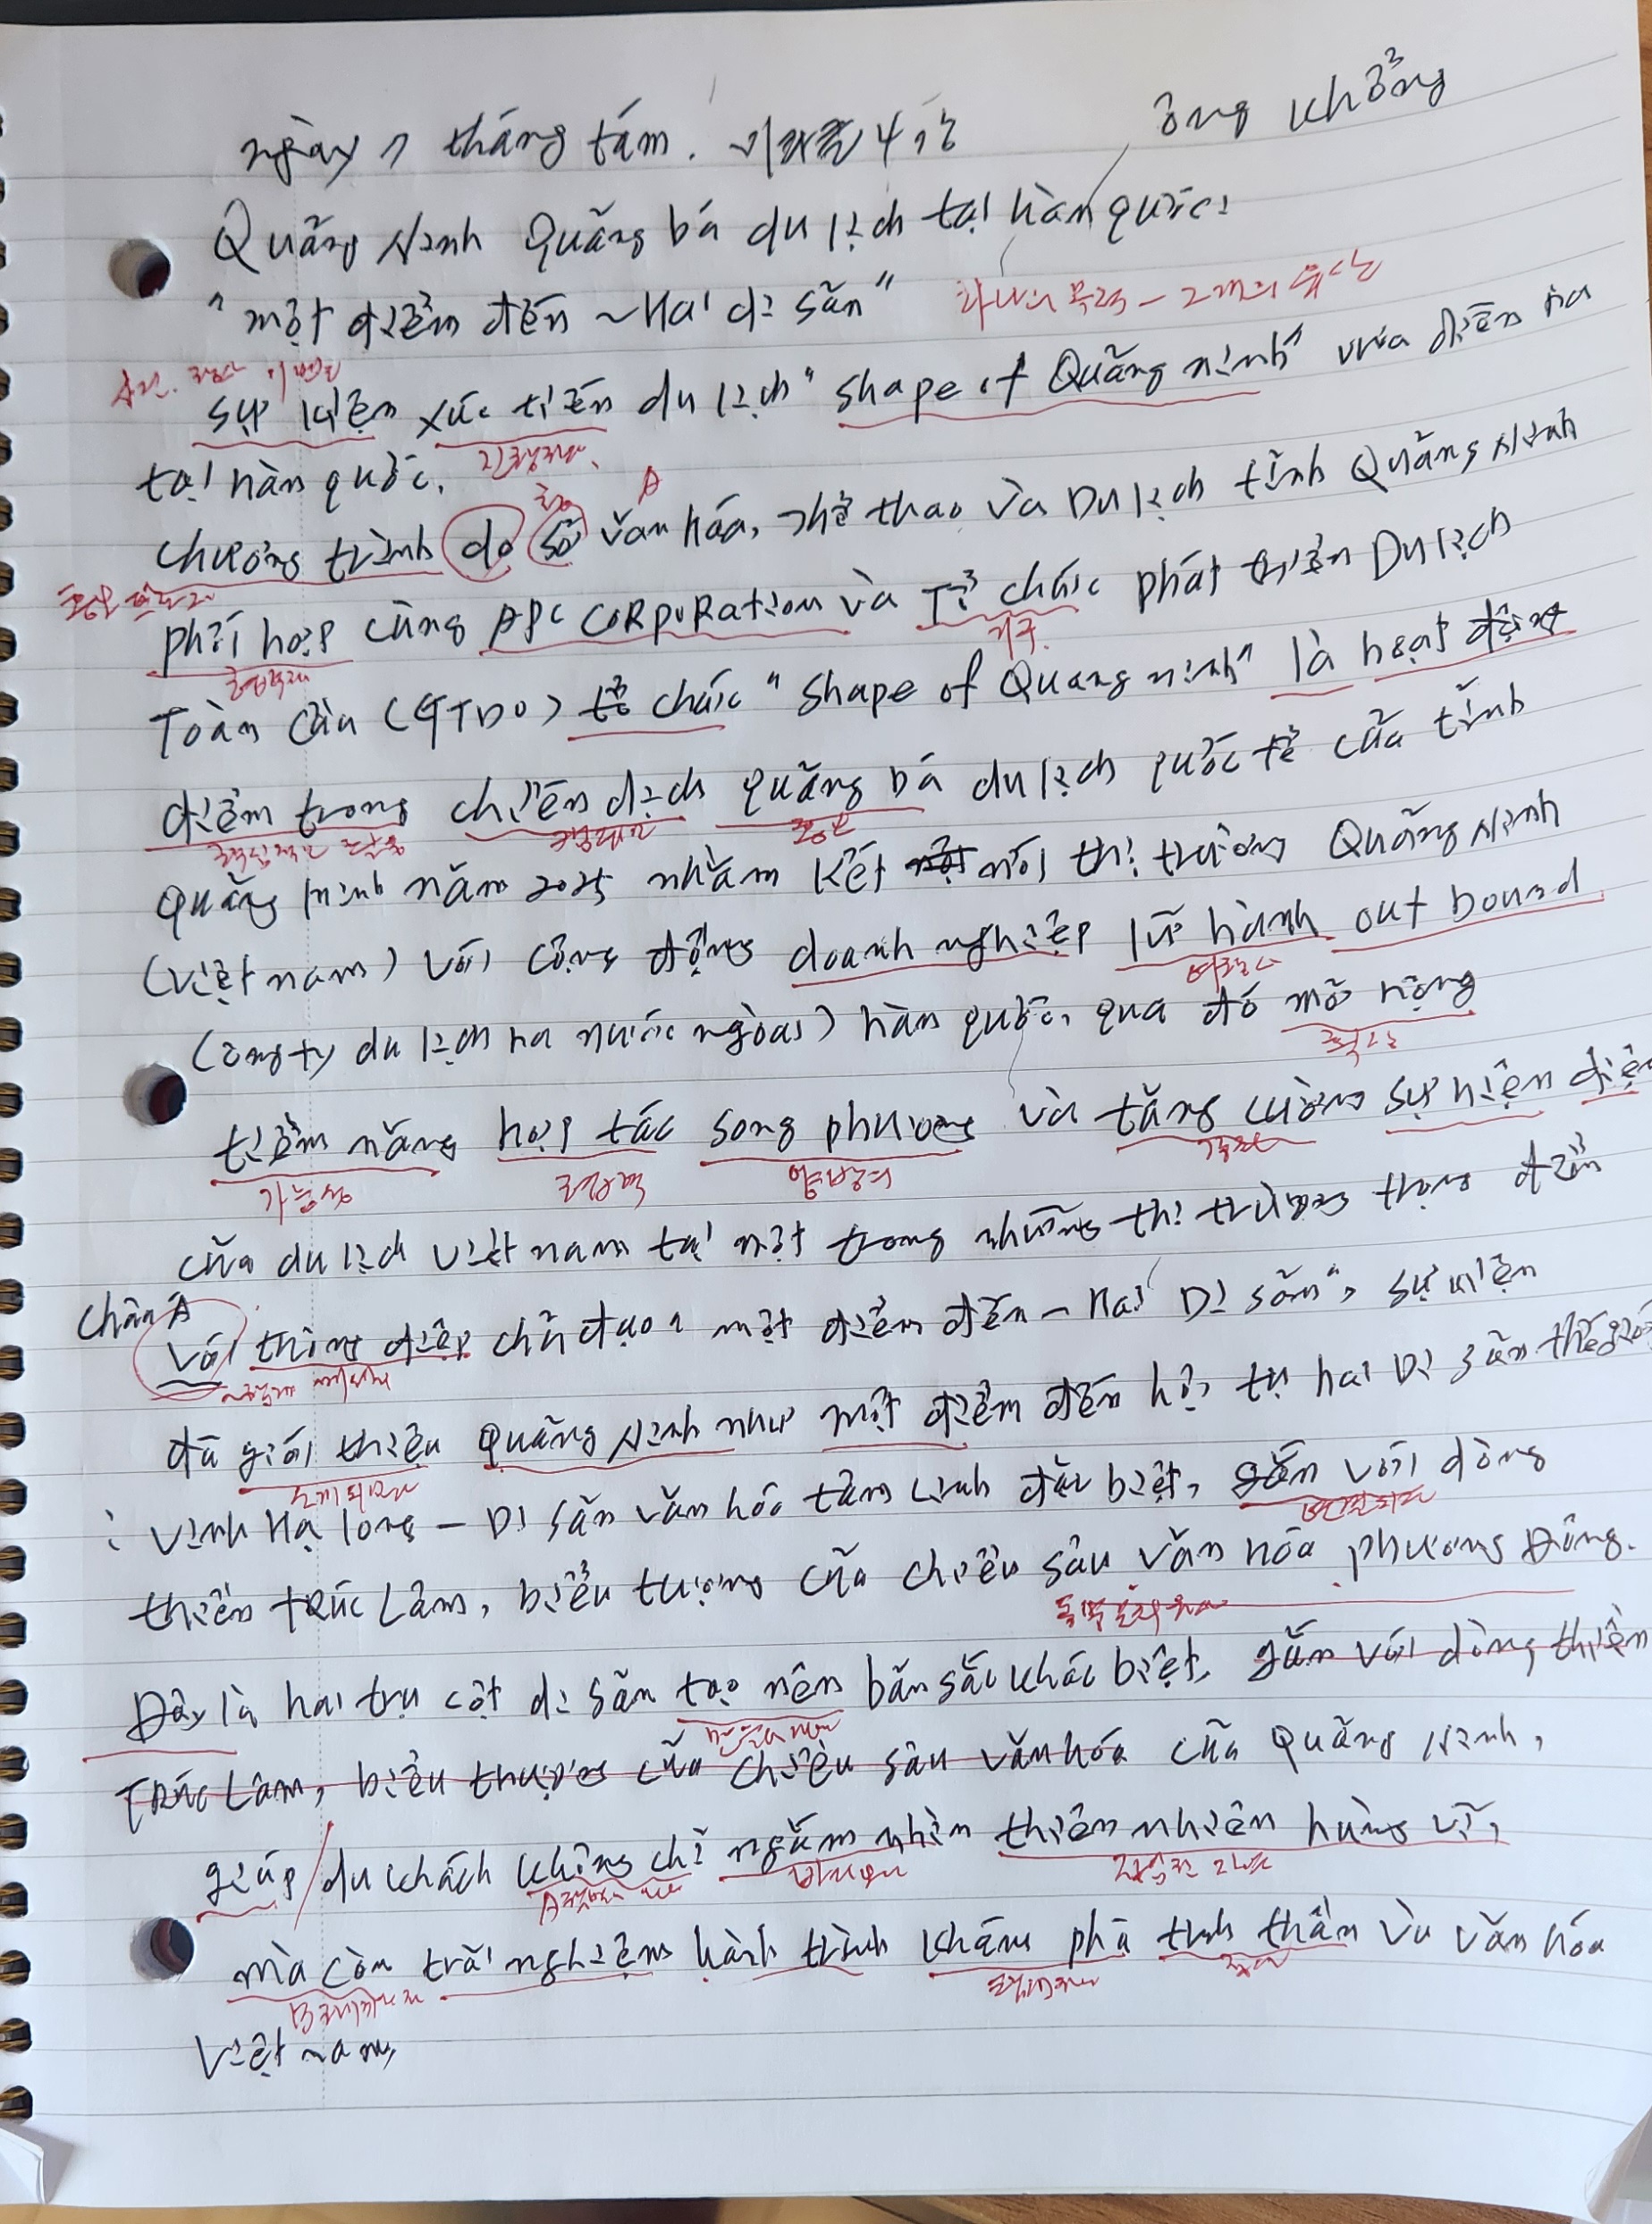 ông Khổng
ngày 7 tháng tám.
Quãng Ninh Quãng bá du lịch tại hàn quốc:
"một điểm đến ~ Hai di sãn"
하나의 목적 - 2개의 유산
sự kiện xúc tiến du lịch "shape of Quãng ninh" vừa diễn ra
tại hàn quốc.
A
chương trình do sở văn hóa, thể thao và Du lịch tỉnh Quãng Ninh
phối hợp cùng APC CORPORation và Tổ chức phát triển Du lịch
기구
Toàn Cầu (GTDO) tổ chức "shape of Quang ninh" là hoạt động
điểm trong chiến dịch quãng bá du lịch quốc tế cũa tỉnh
캠페인
홍보
Quãng ninh năm 2025 nhằm kết nối thị trường Quãng Ninh
(việt nam) với cộng động doanh nghiệp lữ hành out bound
여행사
(công ty du lịch ra nước ngòai) hàn quốc, qua đó mỡ rộng
확산
tiềm năng hợp tác song phương và tăng cường sự hiện diện
가능성 협력 양방의
cũa du lịch việt nam tại một trong những thị trường trọng điểm
Chân A
với thông điệp chũ đạo: một điểm đến - Hai Di sãn", sự kiện
đã giới thiệu Quãng Ninh như một điểm đến hội tụ hai Di sãn thế giới
: vịnh Hạ long - Di sãn văn hóa tâm linh đặc biệt, gắn với dòng
thiền trúc Lâm, biểu tượng cũa chiều sâu văn hóa phương Đông.
Đây là hai trụ cột di sãn tạo nên bãn sắc khác biệt, gắn với dòng thiền
Trúc Lâm, biểu tượng cũa chiều sâu văn hóa cũa Quãng Ninh,
giúp du khách không chĩ ngắm nhìn thiên nhiên hùng vĩ,
mà còn trãi nghiệm hành trình khám phá tinh thần và văn hóa
việt nam,